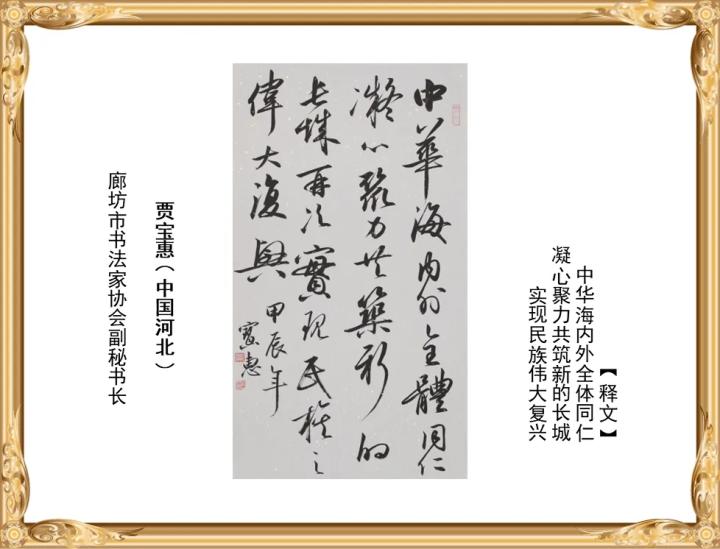 【释文】
中华海内外全体同仁
凝心聚力共筑新的长城
实现民族伟大复兴
中華海内外全體同仁
凝心聚力共築新的
长城再次實現民族之
偉大復興 甲辰年
寶惠
贾宝惠（中国河北）
廊坊市书法家协会副秘书长